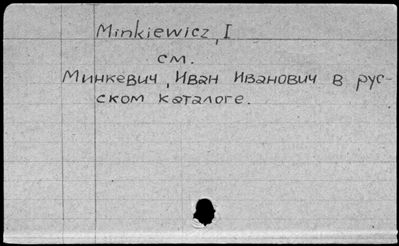 Minkiewicz, I
см.
Минкевич, Иван Иванович в рус-
ском каталоге.